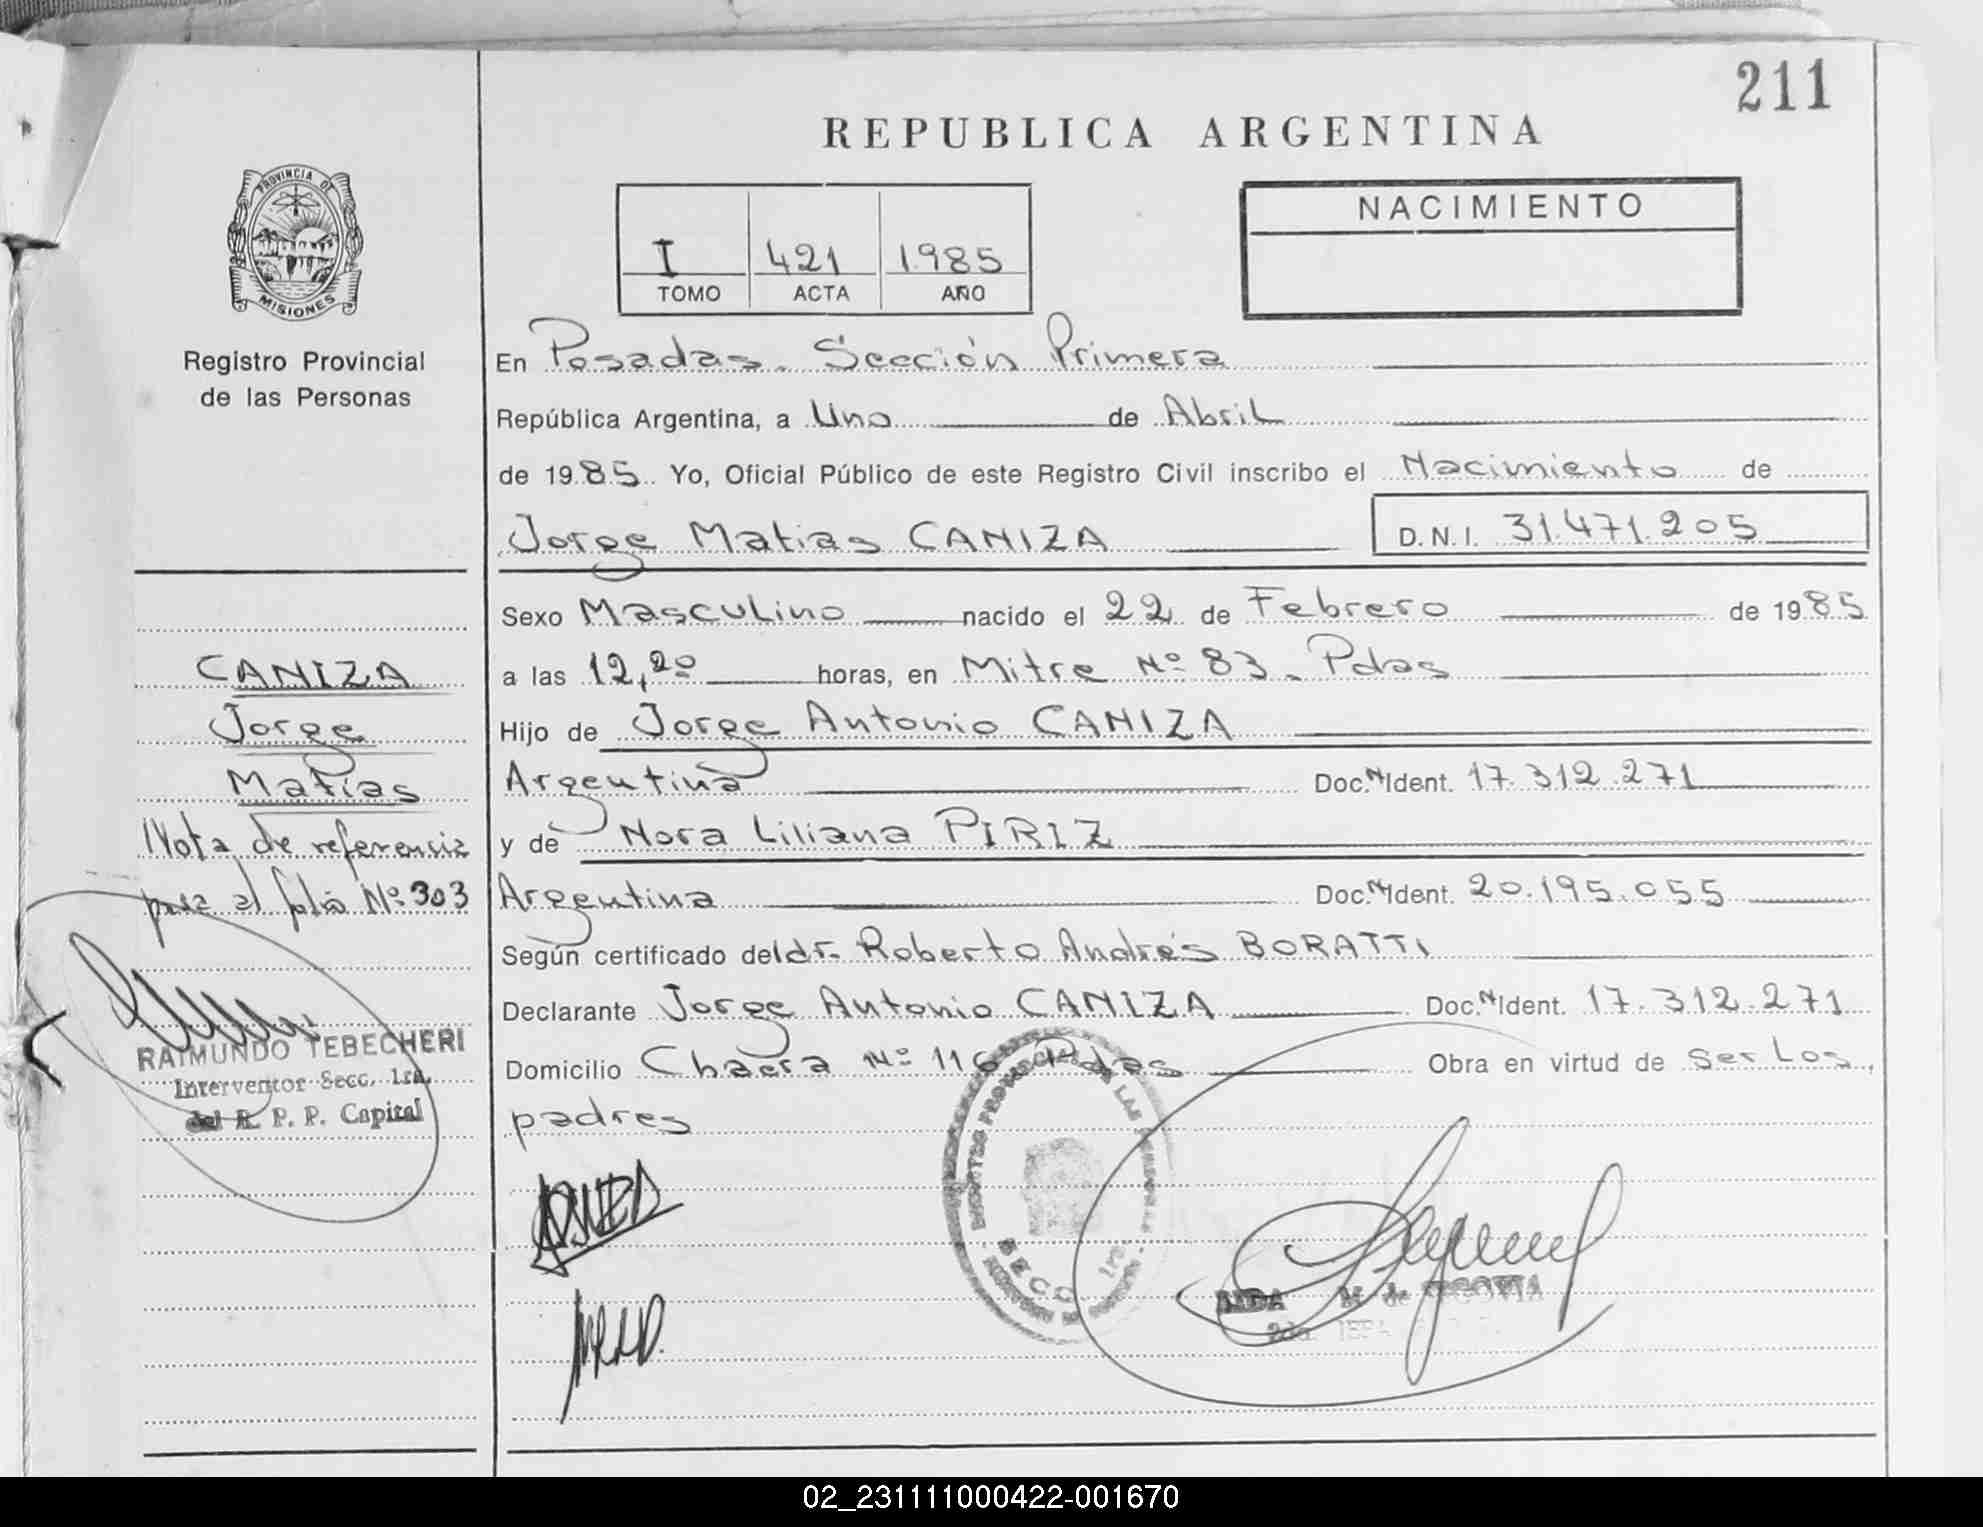 211
REPUBLICA ARGENTINA
PROVINCIA DE
MISIONES
Registro Provincial
de las Personas
I 421 1985
TOMO ACTA AÑO
NACIMIENTO
En Posadas. Sección Primera
República Argentina, a Uno de Abril
de 1985 Yo, Oficial Público de este Registro Civil inscribo el Nacimiento de
Jorge Matias CANIZA D.N.I. 31.471.205
Sexo Masculino nacido el 22 de Febrero de 1985
a las 12,20 horas, en Mitre Nº 83. Pdas
Hijo de Jorge Antonio CANIZA
Argentina Doc. Ident. 17.312.271
y de Nora Liliana PIRIZ
Argentina Doc. Ident. 20.195.055
Según certificado del dr. Roberto Andrés BORATTI
Declarante Jorge Antonio CANIZA Doc. Ident. 17.312.271
Domicilio Chacra Nº 116 Pdas Obra en virtud de Ser Los
padres
CANIZA
Jorge
Matías
Nota de referencia
pasa al folio Nº 303
RAIMUNDO TEBECHERI
Interventor Secc. 1ra.
del R. P. P. Capital
M. de SEGOVIA
02_231111000422-001670